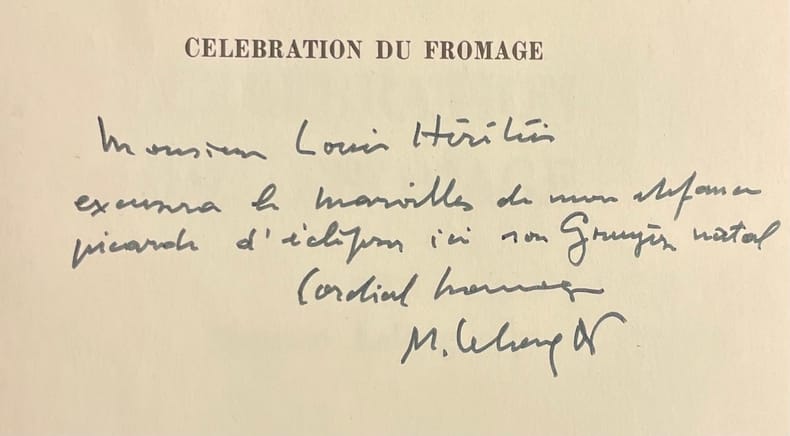 CELEBRATION DU FROMAGE
Monsieur Louis Héritier
excusera le Maroilles de mon enfance
picarde d'éclipser ici son Gruyère natal
Cordial hommage
M. Lelong